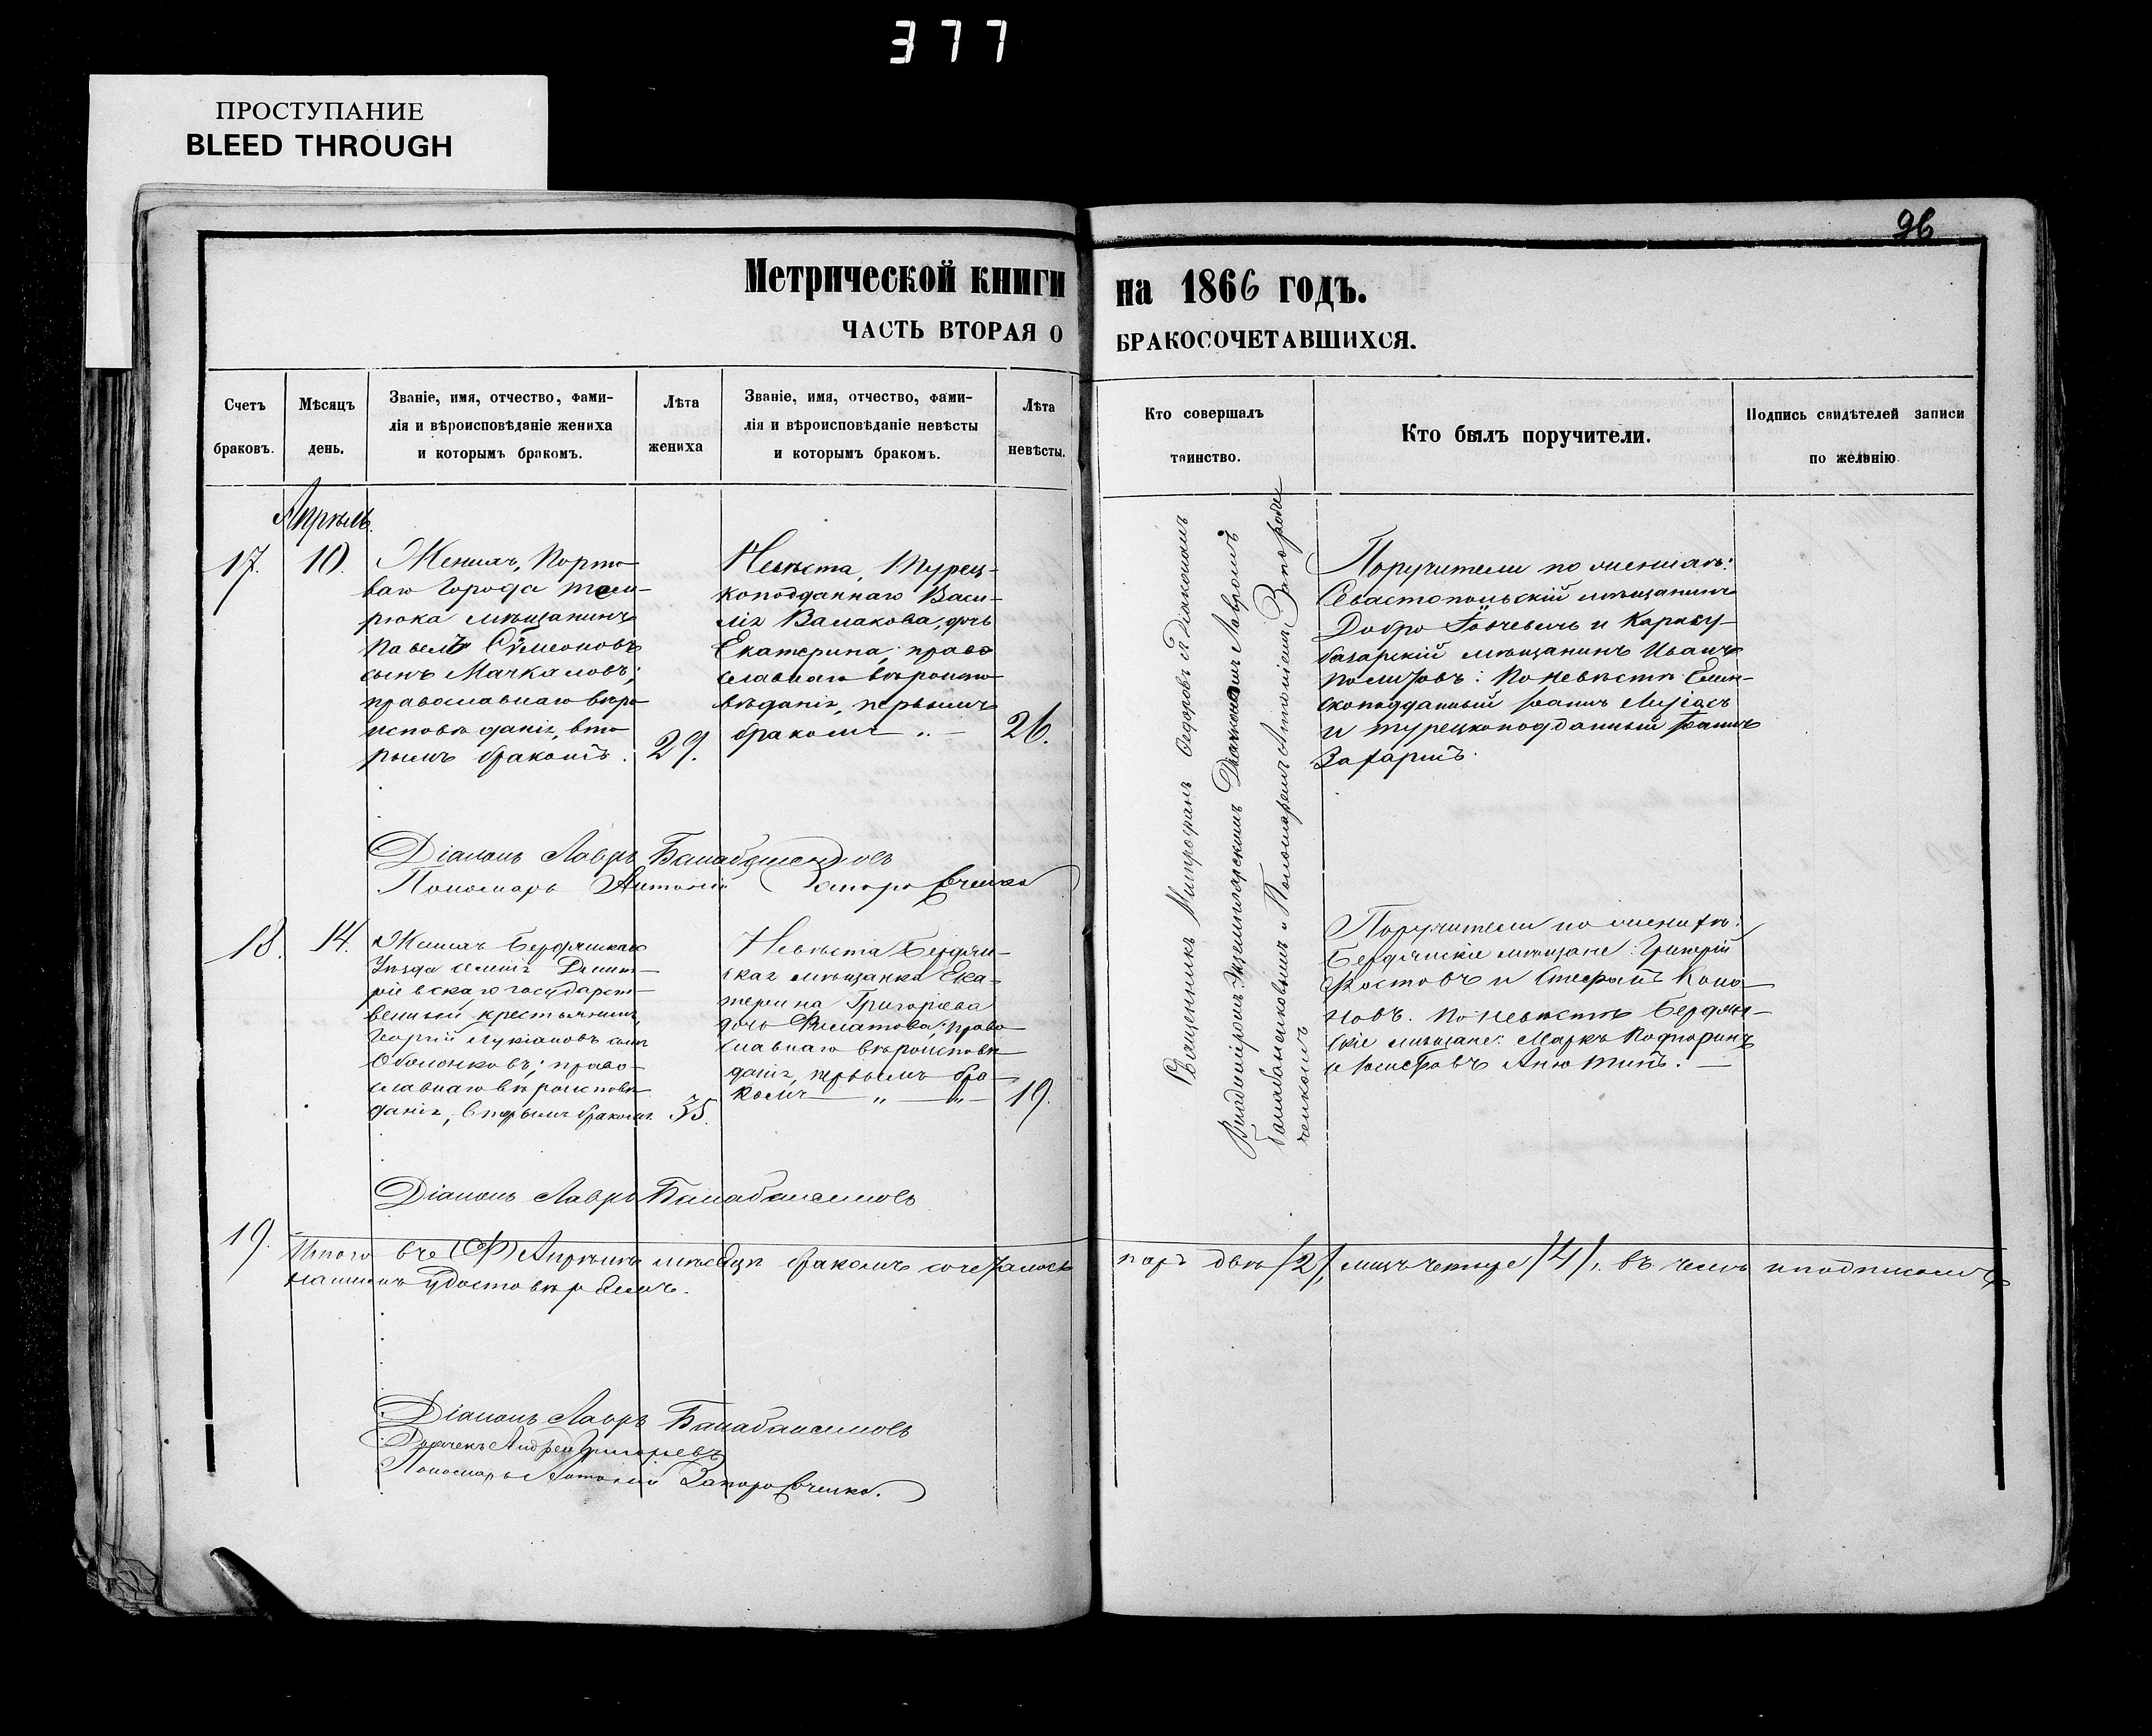 377
ПРОСТУПАНИЕ
BLEED THROUGH
96
Метрической книги на 1866 годъ.
ЧАСТЬ ВТОРАЯ О БРАКОСОЧЕТАВШИХСЯ.
Счетъ
браковъ.
Мѣсяцъ
день.
Званіе, имя, отчество, фами-
лія и вѣроисповѣданіе жениха
и которымъ бракомъ.
Лѣта
жениха
Званіе, имя, отчество, фами-
лія и вѣроисповѣданіе невѣсты
и которымъ бракомъ.
Лѣта
невѣсты.
Кто совершалъ
таинство.
Кто былъ поручители.
Подпись свидѣтелей записи
по желанію
Апрѣль.
17.
10.
Женихъ, Порто
ваго города Тем-
рюка мѣщанинъ
Павелъ Сѵмеоновъ
сынъ Мачкаловъ;
православнаго вѣро
исповѣданія, вто
рымъ бракомъ.
29.
Невѣста, Турец-
коподданнаго Васи-
лія Валакова, дочь
Екатерина; право
славнаго вѣроиспо
вѣданія, первымъ
бракомъ „ —
26.
Священникъ Митрофанъ Ѳедоровъ съ Діакономъ
Лавромъ
Пономаремъ Антоніемъ Запоро
ченкомъ
Поручители по женихѣ:
Севастопольскій мѣщанинъ
Добро и Карасу-
базарскій мѣщанинъ Иванъ
По невѣстѣ: Еллин-
скоподданный
и турецкоподданный
Діаконъ Лавръ
Пономарь Антоній
18.
14.
Женихъ Бердянскаго
Уѣзда селенія Димит-
ріевскаго государст-
венный крестьянинъ,
Георгій Лукіановъ сынъ
Оболонковъ; право-
славнаго вѣроисповѣ-
данія, вторымъ бракомъ.
35.
Невѣста Бердян-
ская мѣщанка Ека-
терина Григорьева
дочь Филатова; право
славнаго вѣроисповѣ
данія, первымъ бра-
комъ — „ — „ —
19.
Поручители по женихѣ:
Бердянскіе мѣщане: Григорій
Костовъ и Стефанъ Коно-
новъ. По невѣстѣ Бердян-
скіе мѣщане: Маркъ
и Анютинъ. —
Діаконъ Лавръ
19.
Итого въ Апрѣлѣ мѣсяцѣ бракомъ сочеталось паръ двѣ /2/, лицъ четыре /4/. въ чемъ и подписомъ
нашимъ удостовѣряемъ.
Діаконъ Лавръ
Дьячекъ Андрей Григорьевъ
Пономарь Антоній